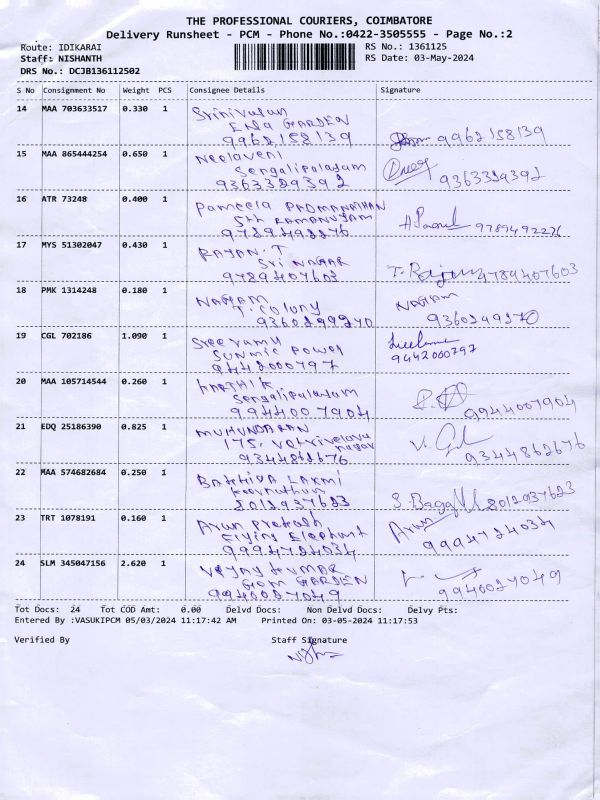 THE PROFESSIONAL COURIERS, COIMBATORE
Delivery Runsheet - PCM - Phone No.:0422-3505555 - Page No.:2
Route: IDIKARAI RS No.: 1361125
Staff: NISHANTH RS Date: 03-May-2024
DRS No.: DCJB136112502
S No Consignment No Weight PCS Consignee Details Signature
14 MAA 703633517 0.330 1 Srinivasan
GARDEN
9962158139 9962158139
15 MAA 865444254 0.650 1 Neelaveni
Sengalipalayam
9363329392 9363329392
16 ATR 73248 0.400 1 Pameela PADMANATHAN
RAMANUJAM
9789492276 9789492276
17 MYS 51302047 0.430 1 RAJAN.T
Sri NAGAR
9789407603 T. Rajan 9789407603
18 PMK 1314248 0.180 1 NAGAM NAGAM
T. Colony
9360299270 9360299270
19 CGL 702186 1.090 1 Sree ramu
SUNMIC Power 9442000797
9442000797
20 MAA 105714544 0.260 1 KARTHIK
Sengalipalayam
9944007904 9944007904
21 EDQ 25186390 0.825 1 MUKUNDARAN
175, Vetrivelava
nagar
9344862676 9344862676
22 MAA 574682684 0.250 1 LAXMI
8012937623 8012937623
23 TRT 1078191 0.160 1 Arun Prakash Arun
Flying Elephant
9994724034 9994724034
24 SLM 345047156 2.620 1 VIJAY KUMAR
Gem GARDEN
9940027049 9940027049
Tot Docs: 24 Tot COD Amt: 0.00 Delvd Docs: Non Delvd Docs: Delvy Pts:
Entered By :VASUKIPCM 05/03/2024 11:17:42 AM Printed On: 03-05-2024 11:17:53
Verified By Staff Signature